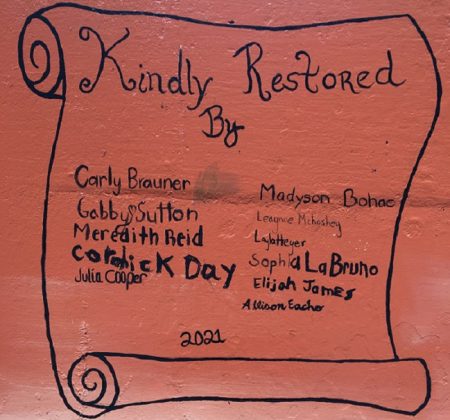 Kindly Restored
By
Carly Brauner
Gabby Sutton
Meredith Reid
Cordick Day
Julia Cooper
Madyson Bohac
Sophia LaBruno
Elijah James
Allison
2021